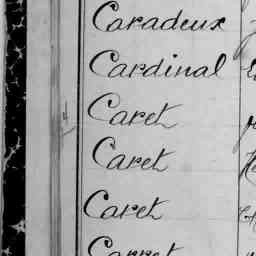 Caradeux
Cardinal
Caret
Caret
Caret
Carret